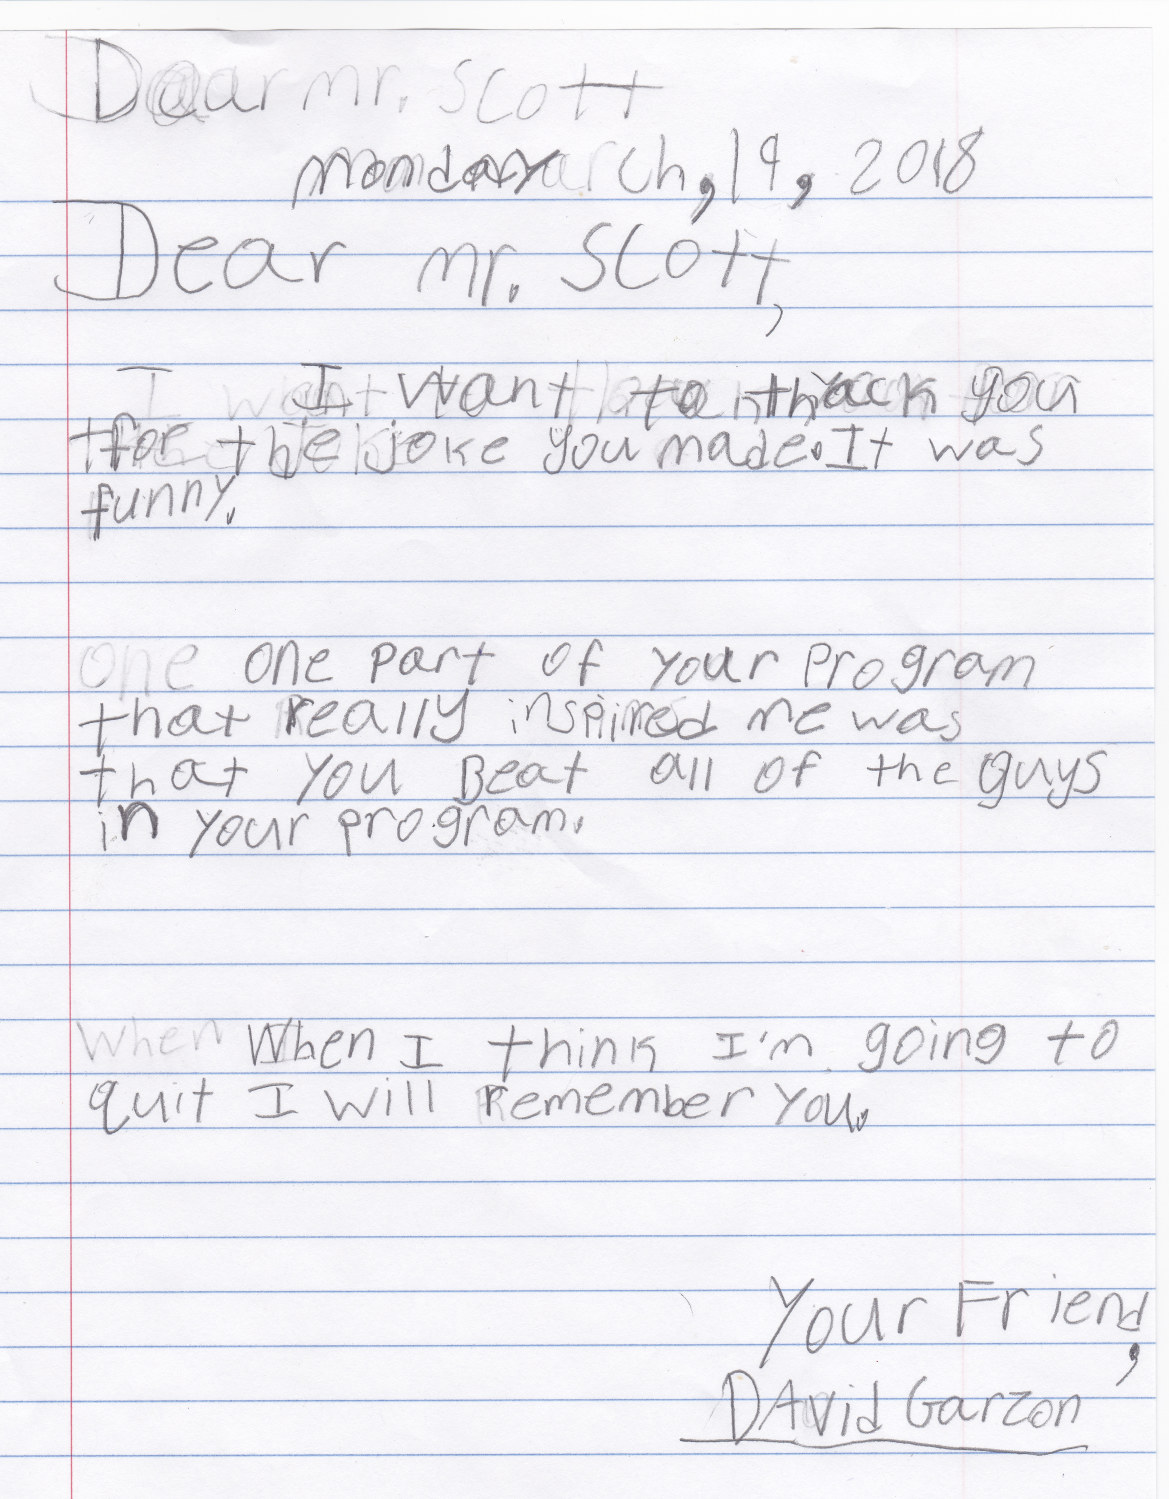 Dear mr. Scott
monday march, 19, 2018
Dear mr. Scott,
I want to thack you
for the joke you made. It was
funny.
one one part of your Program
that really inspired me was
that you Beat all of the guys
in your program.
When When I think I'm going to
quit I will remember you.
Your Friend,
DAvid Garzon